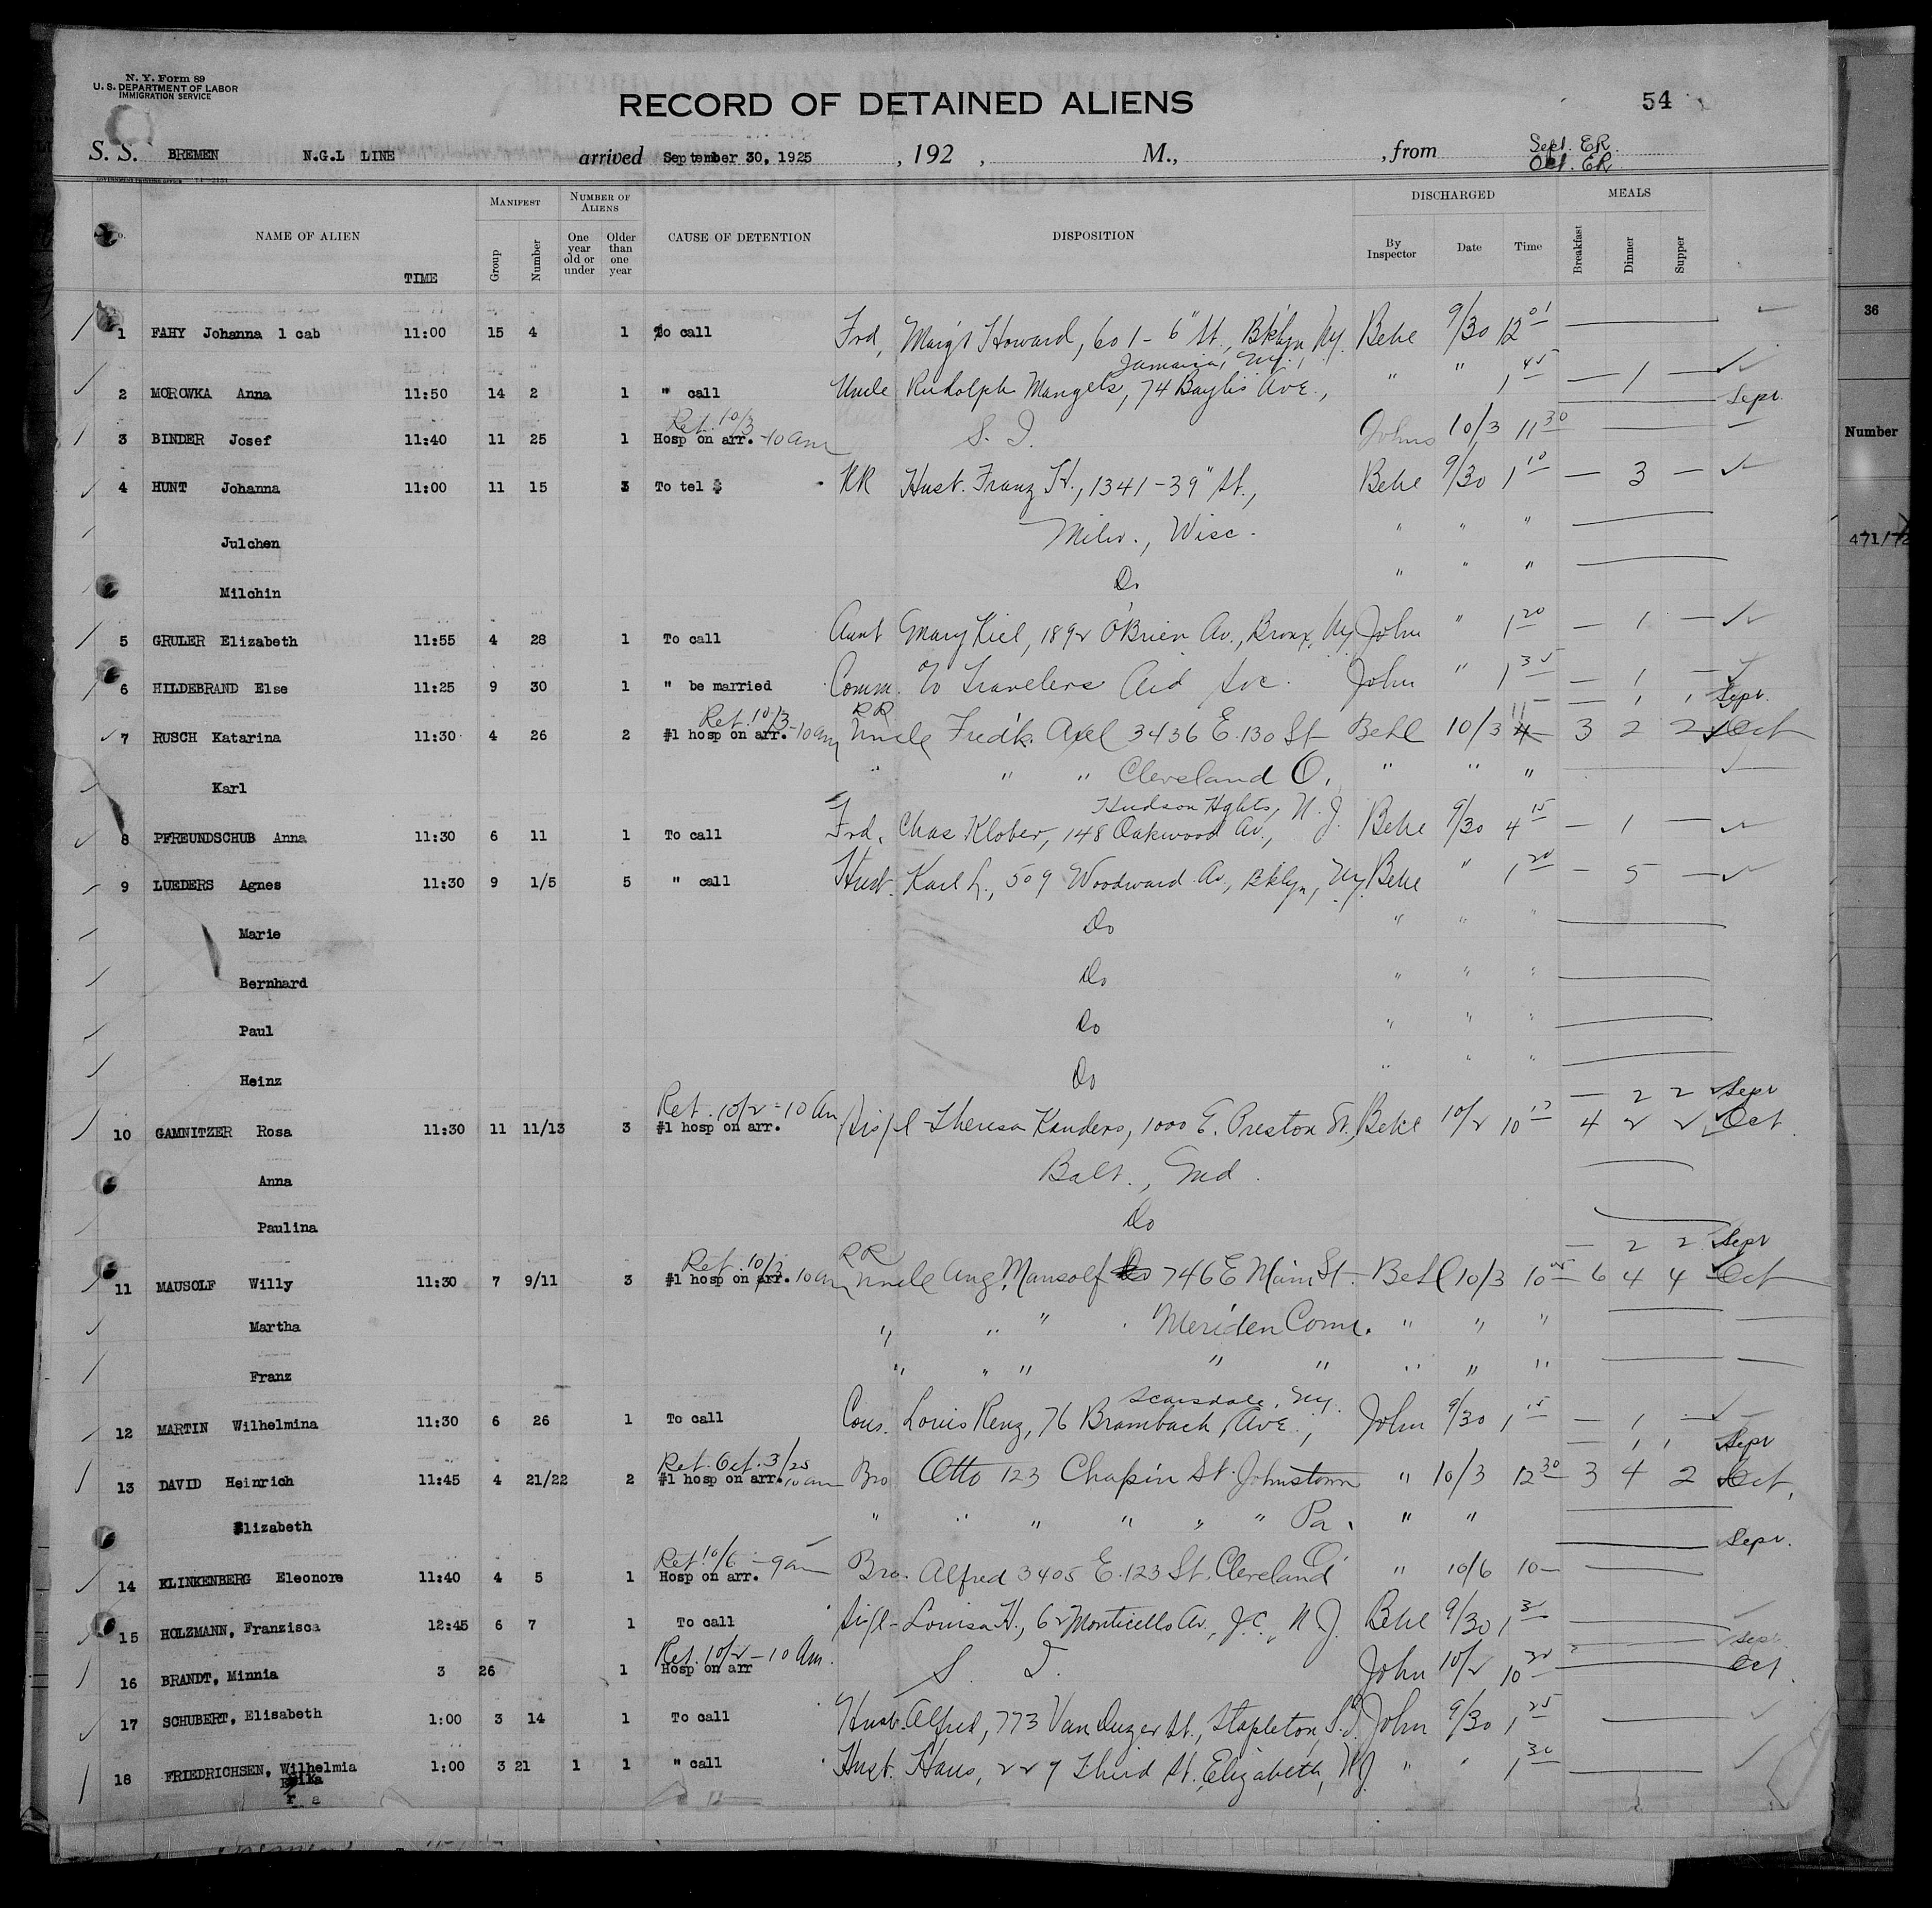 N. Y. Form 89
U. S. DEPARTMENT OF LABOR
IMMIGRATION SERVICE
RECORD OF DETAINED ALIENS
54
S. S. BREMEN N.G.L LINE arrived September 30, 1925, 192 , M., , from Sept. ER.
Oct. ER
NAME OF ALIEN TIME
MANIFEST Group Number
NUMBER OF ALIENS One year old or under Older than one year
CAUSE OF DETENTION
DISPOSITION
DISCHARGED By Inspector Date Time
MEALS Breakfast Dinner Supper
36
Number
1 FAHY Johanna 1 cab 11:00 15 4 1 To call Frd, Marg't Howard, 601-6" St., Bklyn Ny. Behe 9/30 12 01
Jamaica, Ny.,
2 MOROWKA Anna 11:50 14 2 1 " call Uncle Rudolph Mangels, 74 Baylis Ave., " " 1 45 — 1 —
Sepr.
Ret. 10/3
3 BINDER Josef 11:40 11 25 1 Hosp on arr. -10 am S. I. Johns 10/3 11 30
4 HUNT Johanna 11:00 11 15 3 To tel $ RR Hust. Franz H., 1341-39" St., Behe 9/30 1 10 — 3 —
Julchen Milw., Wisc. " " "
Milchin Do " " "
5 GRULER Elizabeth 11:55 4 28 1 To call Aunt Mary Kiel, 1892 O'Brien Av., Bronx, Ny John " 1 20 — 1 —
6 HILDEBRAND Else 11:25 9 30 1 " be married Comm. To Travelers Aid Soc. John " 1 35 — 1 —
Ret. 10/3 RR — 1 1 Sepr.
7 RUSCH Katarina 11:30 4 26 2 #1 hosp on arr. -10 am Uncle Fredk. Axel 3436 E. 130 St Behl 10/3 11 3 2 2 Oct
Karl " " " Cleveland O. " " "
Hudson Hghts, N. J.
8 PFREUNDSCHUB Anna 11:30 6 11 1 To call Frd, Chas Klober, 148 Oakwood Av., Behe 9/30 4 15 — 1 —
9 LUEDERS Agnes 11:30 9 1/5 5 " call Hust. Karl L., 509 Woodward Av., Bklyn, Ny. Behe " 1 20 — 5 —
Marie Do " " "
Bernhard Do " " "
Paul Do " " "
Heinz Do " " "
Ret. 10/2 - 10 Am — 2 2 Sepr
10 GAMNITZER Rosa 11:30 11 11/13 3 #1 hosp on arr. Theresa Kanders, 1000 E. Preston St. Behe 10/2 10 4 2 2 Oct.
Anna Balt., Md.
Paulina Do
Ret. 10/3 RR — 2 2 Sepr
11 MAUSOLF Willy 11:30 7 9/11 3 #1 hosp on arr. 10 am Uncle Aug. Mausolf 746 E Main St. Behl 10/3 10 05 6 4 4 Oct
Martha " " " Meriden Conn. " " "
Franz " " " " " " " "
Scarsdale, Ny.
12 MARTIN Wilhelmina 11:30 6 26 1 To call Cous. Louis Renz, 76 Brambach Ave., John 9/30 1 15 — 1 —
Ret. Oct. 3/25 — 1 1 Sepr
13 DAVID Heinrich 11:45 4 21/22 2 #1 hosp on arr. 10 am Bro Otto 123 Chapin St. Johnstown " 10/3 12 30 3 4 2 Oct.
Elizabeth " " " " " " Pa. " "
Sepr.
Ret. 10/6 - 9 am
14 KLINKENBERG Eleonore 11:40 4 5 1 Hosp on arr. Bro. Alfred 3405 E. 123 St. Cleveland O. " 10/6 10—
15 HOLZMANN, Franzisca 12:45 6 7 1 To call Louisa H., 62 Monticello Av., J.C., N J. Behe 9/30 1 30
Ret. 10/2 - 10 Am. Sepr.
16 BRANDT, Minnia 3 26 1 Hosp on arr S I. John 10/2 10 20 Oct.
17 SCHUBERT, Elisabeth 1:00 3 14 1 To call Husb. Alfred, 773 Van Duzer St., Stapleton, S.I. John 9/30 1 25
18 FRIEDRICHSEN, Wilhelmia 1:00 3 21 1 1 " call Hust. Hans, 227 Third St., Elizabeth, NJ. " " 1 30
Erika